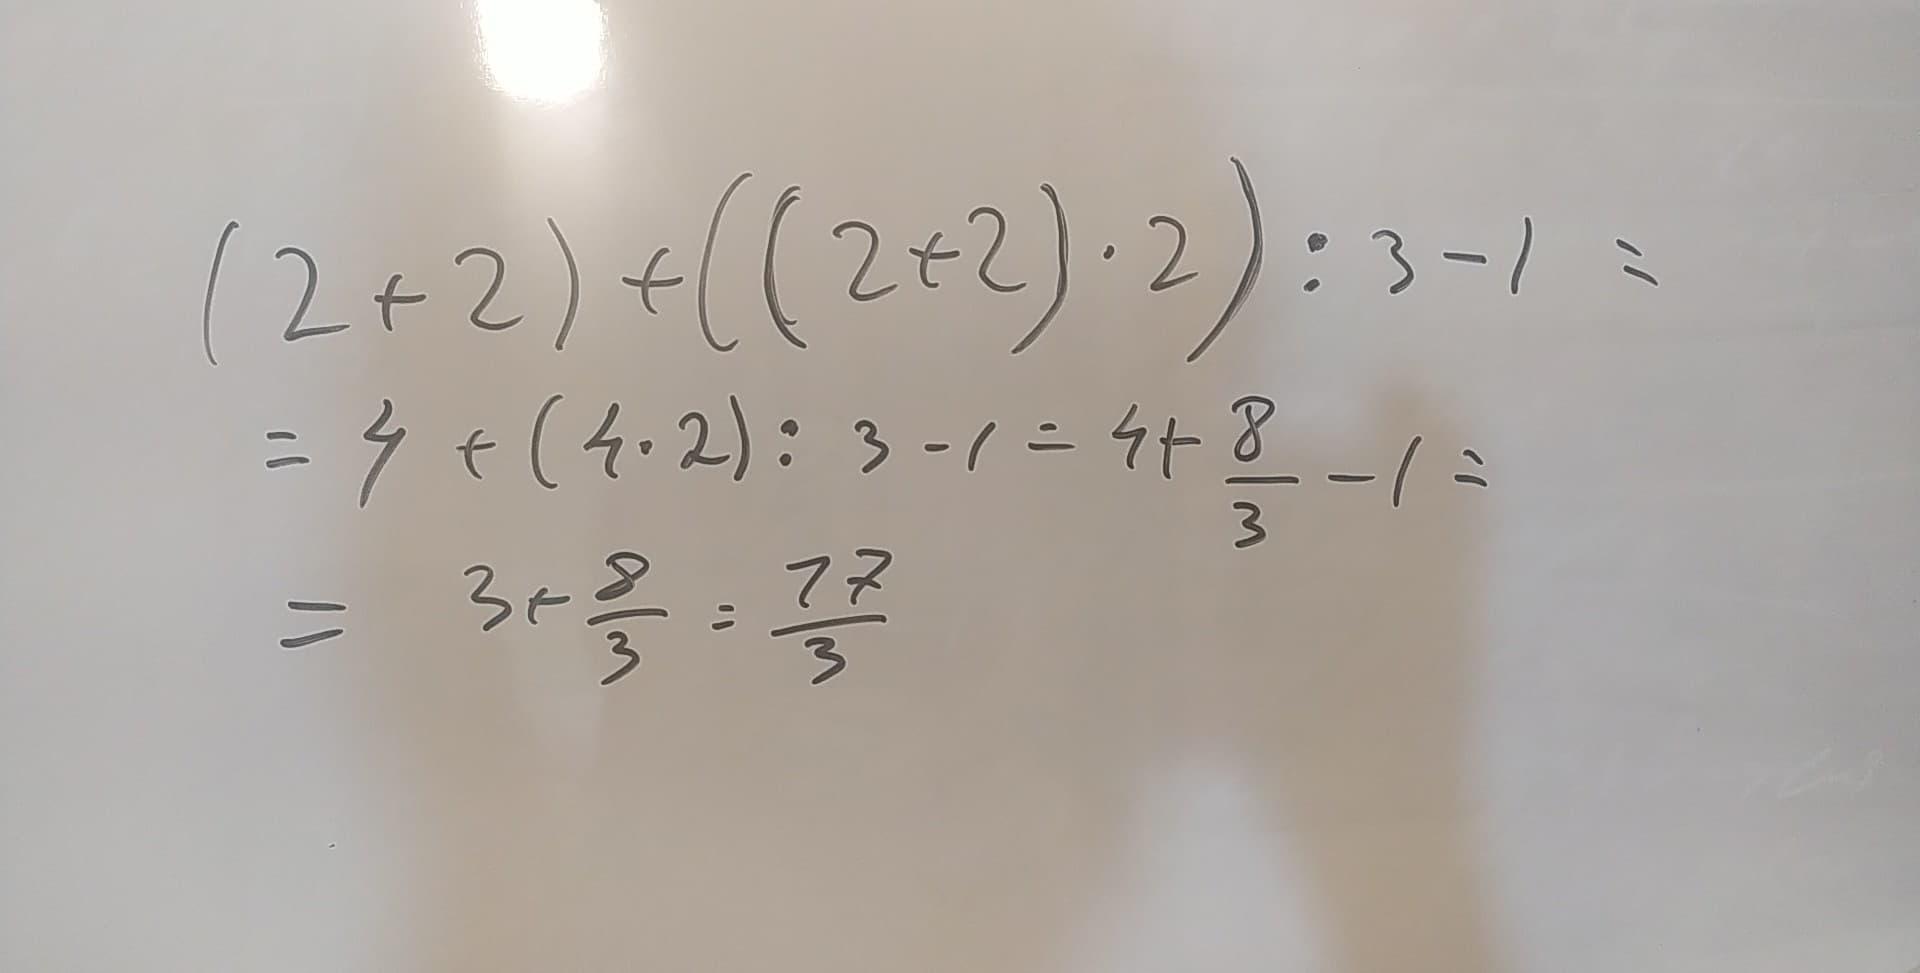 (2+2)+((2+2)·2):3-1=
=4+(4·2):3-1=4+8/3-1=
=3+8/3=17/3